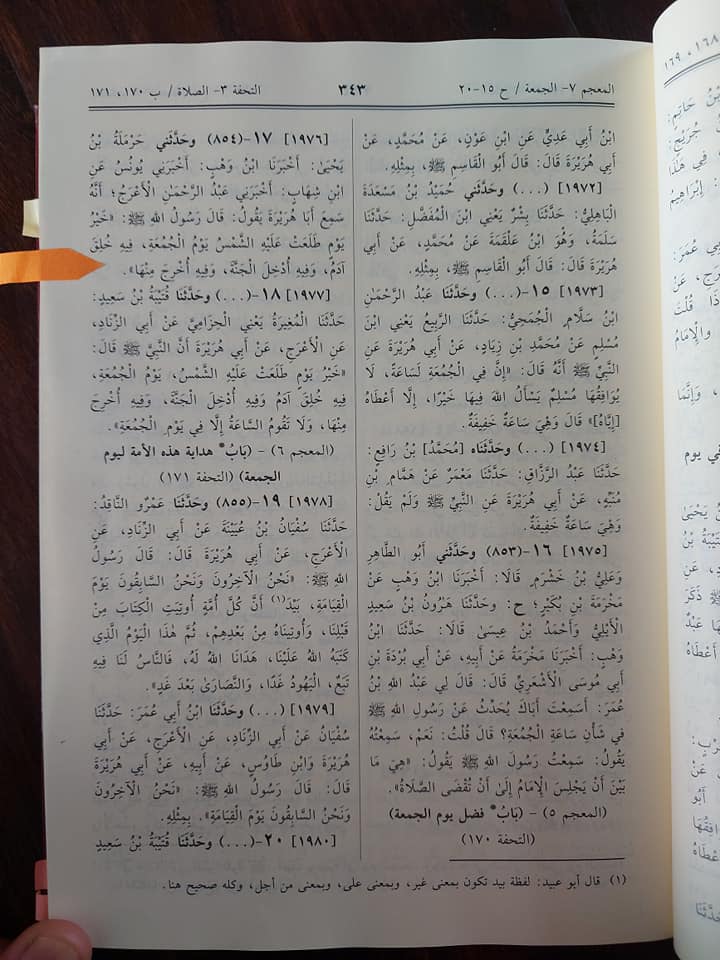 المعجم ٧- الجمعة / ح ١٥-٢٠
٣٤٣
التحفة ٣- الصلاة / ب ١٧٠، ١٧١
ابْنُ أَبِي عَدِيٍّ عَنِ ابْنِ عَوْنٍ، عَنْ مُحَمَّدٍ، عَنْ
أَبِي هُرَيْرَةَ قَالَ: قَالَ أَبُو الْقَاسِمِ ﷺ، بِمِثْلِهِ.
[١٩٧٢] (...) وحَدَّثَنِي حُمَيْدُ بْنُ مَسْعَدَةَ
الْبَاهِلِيُّ: حَدَّثَنَا بِشْرٌ يَعْنِي ابْنَ الْمُفَضَّلِ: حَدَّثَنَا
سَلَمَةُ، وَهُوَ ابْنُ عَلْقَمَةَ عَنْ مُحَمَّدٍ، عَنْ أَبِي
هُرَيْرَةَ قَالَ: قَالَ أَبُو الْقَاسِمِ ﷺ، بِمِثْلِهِ.
[١٩٧٣] ١٥-(...) وحَدَّثَنَا عَبْدُ الرَّحْمٰنِ
ابْنُ سَلَّامٍ الْجُمَحِيُّ: حَدَّثَنَا الرَّبِيعُ يَعْنِي ابْنَ
مُسْلِمٍ عَنْ مُحَمَّدِ بْنِ زِيَادٍ، عَنْ أَبِي هُرَيْرَةَ عَنِ
النَّبِيِّ ﷺ أَنَّهُ قَالَ: «إِنَّ فِي الْجُمُعَةِ لَسَاعَةً، لَا
يُوَافِقُهَا مُسْلِمٌ يَسْأَلُ اللهَ فِيهَا خَيْرًا، إِلَّا أَعْطَاهُ
[إِيَّاهُ]» قَالَ وَهِيَ سَاعَةٌ خَفِيفَةٌ.
[١٩٧٤] (...) وحَدَّثَنَاه [مُحَمَّدُ] بْنُ رَافِعٍ:
حَدَّثَنَا عَبْدُ الرَّزَّاقِ: حَدَّثَنَا مَعْمَرٌ عَنْ هَمَّامِ بْنِ
مُنَبِّهٍ، عَنْ أَبِي هُرَيْرَةَ عَنِ النَّبِيِّ ﷺ وَلَمْ يَقُلْ:
وَهِيَ سَاعَةٌ خَفِيفَةٌ.
[١٩٧٥] ١٦-(٨٥٣) وحَدَّثَنِي أَبُو الطَّاهِرِ
وَعَلِيُّ بْنُ خَشْرَمٍ قَالَا: أَخْبَرَنَا ابْنُ وَهْبٍ عَنْ
مَخْرَمَةَ بْنِ بُكَيْرٍ؛ ح: وحَدَّثَنَا هَرُونُ بْنُ سَعِيدٍ
الْأَيْلِيُّ وَأَحْمَدُ بْنُ عِيسَىٰ قَالَا: حَدَّثَنَا ابْنُ
وَهْبٍ: أَخْبَرَنَا مَخْرَمَةُ عَنْ أَبِيهِ، عَنْ أَبِي بُرْدَةَ بْنِ
أَبِي مُوسَى الْأَشْعَرِيِّ قَالَ: قَالَ لِي عَبْدُ اللهِ بْنُ
عُمَرَ: أَسَمِعْتَ أَبَاكَ يُحَدِّثُ عَنْ رَسُولِ اللهِ ﷺ
فِي شَأْنِ سَاعَةِ الْجُمُعَةِ؟ قَالَ قُلْتُ: نَعَمْ، سَمِعْتُهُ
يَقُولُ: سَمِعْتُ رَسُولَ اللهِ ﷺ يَقُولُ: «هِيَ مَا
بَيْنَ أَنْ يَجْلِسَ الْإِمَامُ إِلَىٰ أَنْ تُقْضَى الصَّلَاةُ».
(المعجم ٥) - (بَابُ* فضل يوم الجمعة)
(التحفة ١٧٠)
[١٩٧٦] ١٧-(٨٥٤) وحَدَّثَنِي حَرْمَلَةُ بْنُ
يَحْيَىٰ: أَخْبَرَنَا ابْنُ وَهْبٍ: أَخْبَرَنِي يُونُسُ عَنِ
ابْنِ شِهَابٍ: أَخْبَرَنِي عَبْدُ الرَّحْمٰنِ الْأَعْرَجُ؛ أَنَّهُ
سَمِعَ أَبَا هُرَيْرَةَ يَقُولُ: قَالَ رَسُولُ اللهِ ﷺ: «خَيْرُ
يَوْمٍ طَلَعَتْ عَلَيْهِ الشَّمْسُ يَوْمُ الْجُمُعَةِ، فِيهِ خُلِقَ
آدَمُ، وَفِيهِ أُدْخِلَ الْجَنَّةَ، وَفِيهِ أُخْرِجَ مِنْهَا».
[١٩٧٧] ١٨-(...) وحَدَّثَنَا قُتَيْبَةُ بْنُ سَعِيدٍ:
حَدَّثَنَا الْمُغِيرَةُ يَعْنِي الْحِزَامِيَّ عَنْ أَبِي الزِّنَادِ،
عَنِ الْأَعْرَجِ، عَنْ أَبِي هُرَيْرَةَ أَنَّ النَّبِيَّ ﷺ قَالَ:
«خَيْرُ يَوْمٍ طَلَعَتْ عَلَيْهِ الشَّمْسُ، يَوْمُ الْجُمُعَةِ،
فِيهِ خُلِقَ آدَمُ وَفِيهِ أُدْخِلَ الْجَنَّةَ، وَفِيهِ أُخْرِجَ
مِنْهَا، وَلَا تَقُومُ السَّاعَةُ إِلَّا فِي يَوْمِ الْجُمُعَةِ».
(المعجم ٦) - (بَابُ* هداية هذه الأمة ليوم
الجمعة) (التحفة ١٧١)
[١٩٧٨] ١٩-(٨٥٥) وحَدَّثَنَا عَمْرٌو النَّاقِدُ:
حَدَّثَنَا سُفْيَانُ بْنُ عُيَيْنَةَ عَنْ أَبِي الزِّنَادِ، عَنِ
الْأَعْرَجِ، عَنْ أَبِي هُرَيْرَةَ قَالَ: قَالَ رَسُولُ
اللهِ ﷺ: «نَحْنُ الْآخِرُونَ وَنَحْنُ السَّابِقُونَ يَوْمَ
الْقِيَامَةِ، بَيْدَ(١) أَنَّ كُلَّ أُمَّةٍ أُوتِيَتِ الْكِتَابَ مِنْ
قَبْلِنَا، وَأُوتِينَاهُ مِنْ بَعْدِهِمْ، ثُمَّ هٰذَا الْيَوْمُ الَّذِي
كَتَبَهُ اللهُ عَلَيْنَا، هَدَانَا اللهُ لَهُ، فَالنَّاسُ لَنَا فِيهِ
تَبَعٌ، الْيَهُودُ غَدًا، وَالنَّصَارَىٰ بَعْدَ غَدٍ».
[١٩٧٩] (...) وحَدَّثَنَا ابْنُ أَبِي عُمَرَ: حَدَّثَنَا
سُفْيَانُ عَنْ أَبِي الزِّنَادِ، عَنِ الْأَعْرَجِ، عَنْ أَبِي
هُرَيْرَةَ وَابْنِ طَاوُسٍ، عَنْ أَبِيهِ، عَنْ أَبِي هُرَيْرَةَ
قَالَ: قَالَ رَسُولُ اللهِ ﷺ: «نَحْنُ الْآخِرُونَ
وَنَحْنُ السَّابِقُونَ يَوْمَ الْقِيَامَةِ». بِمِثْلِهِ.
[١٩٨٠] ٢٠-(...) وحَدَّثَنَا قُتَيْبَةُ بْنُ سَعِيدٍ
(١) قال أبو عبيد: لفظة بيد تكون بمعنى غير، وبمعنى على، وبمعنى من أجل، وكله صحيح هنا.